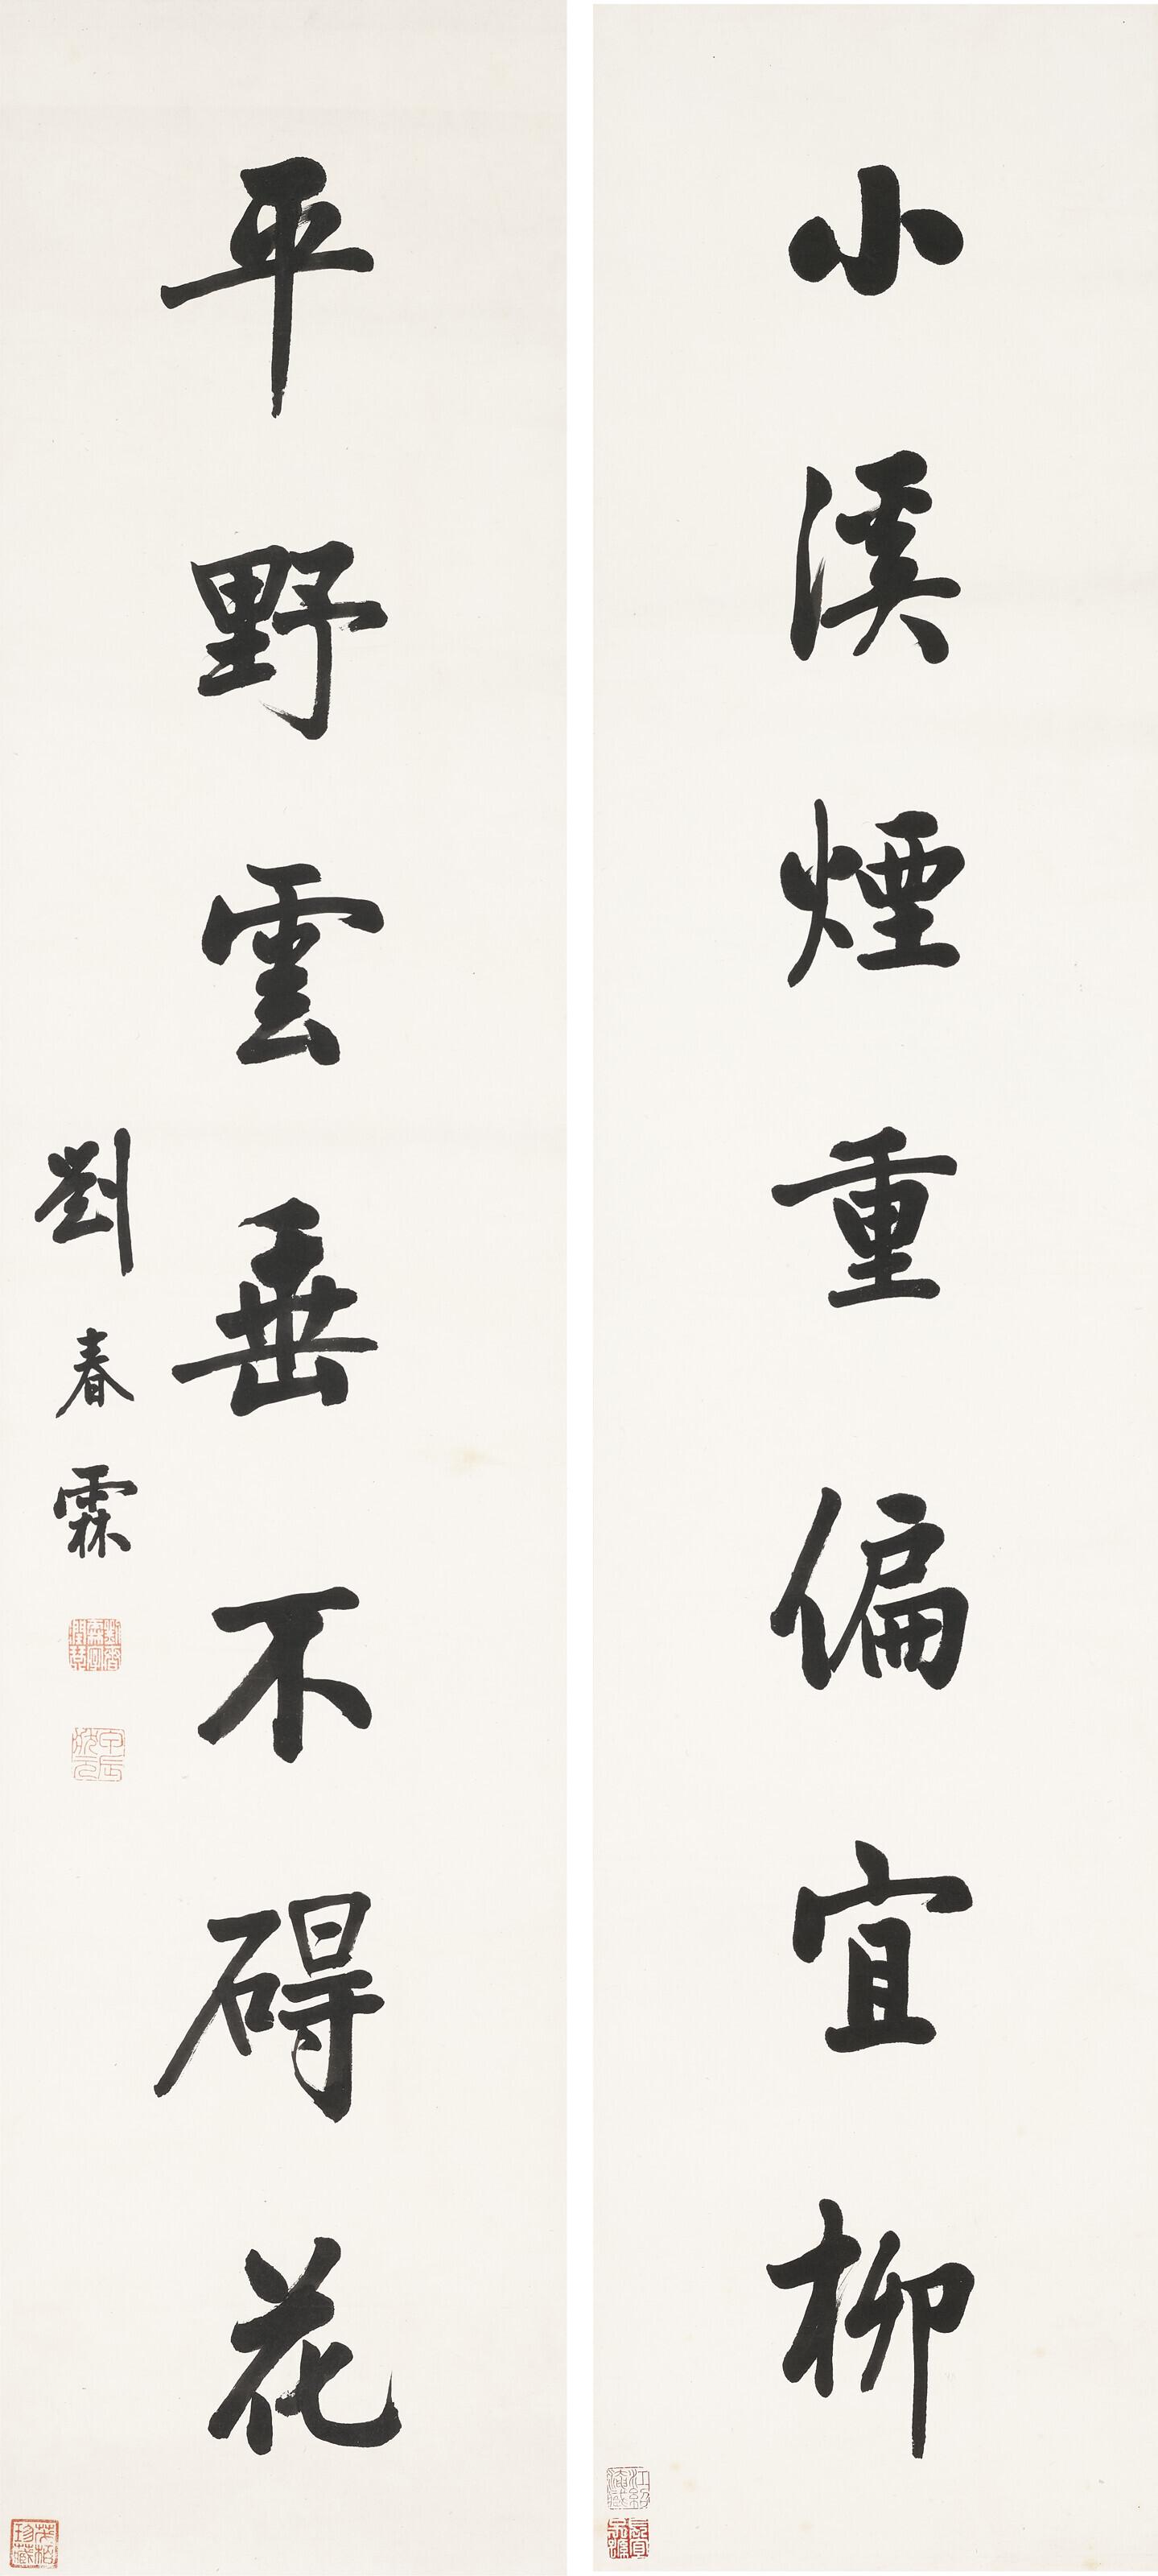 小溪煙重偏宜柳
平野雲垂不碍花
劉春霖